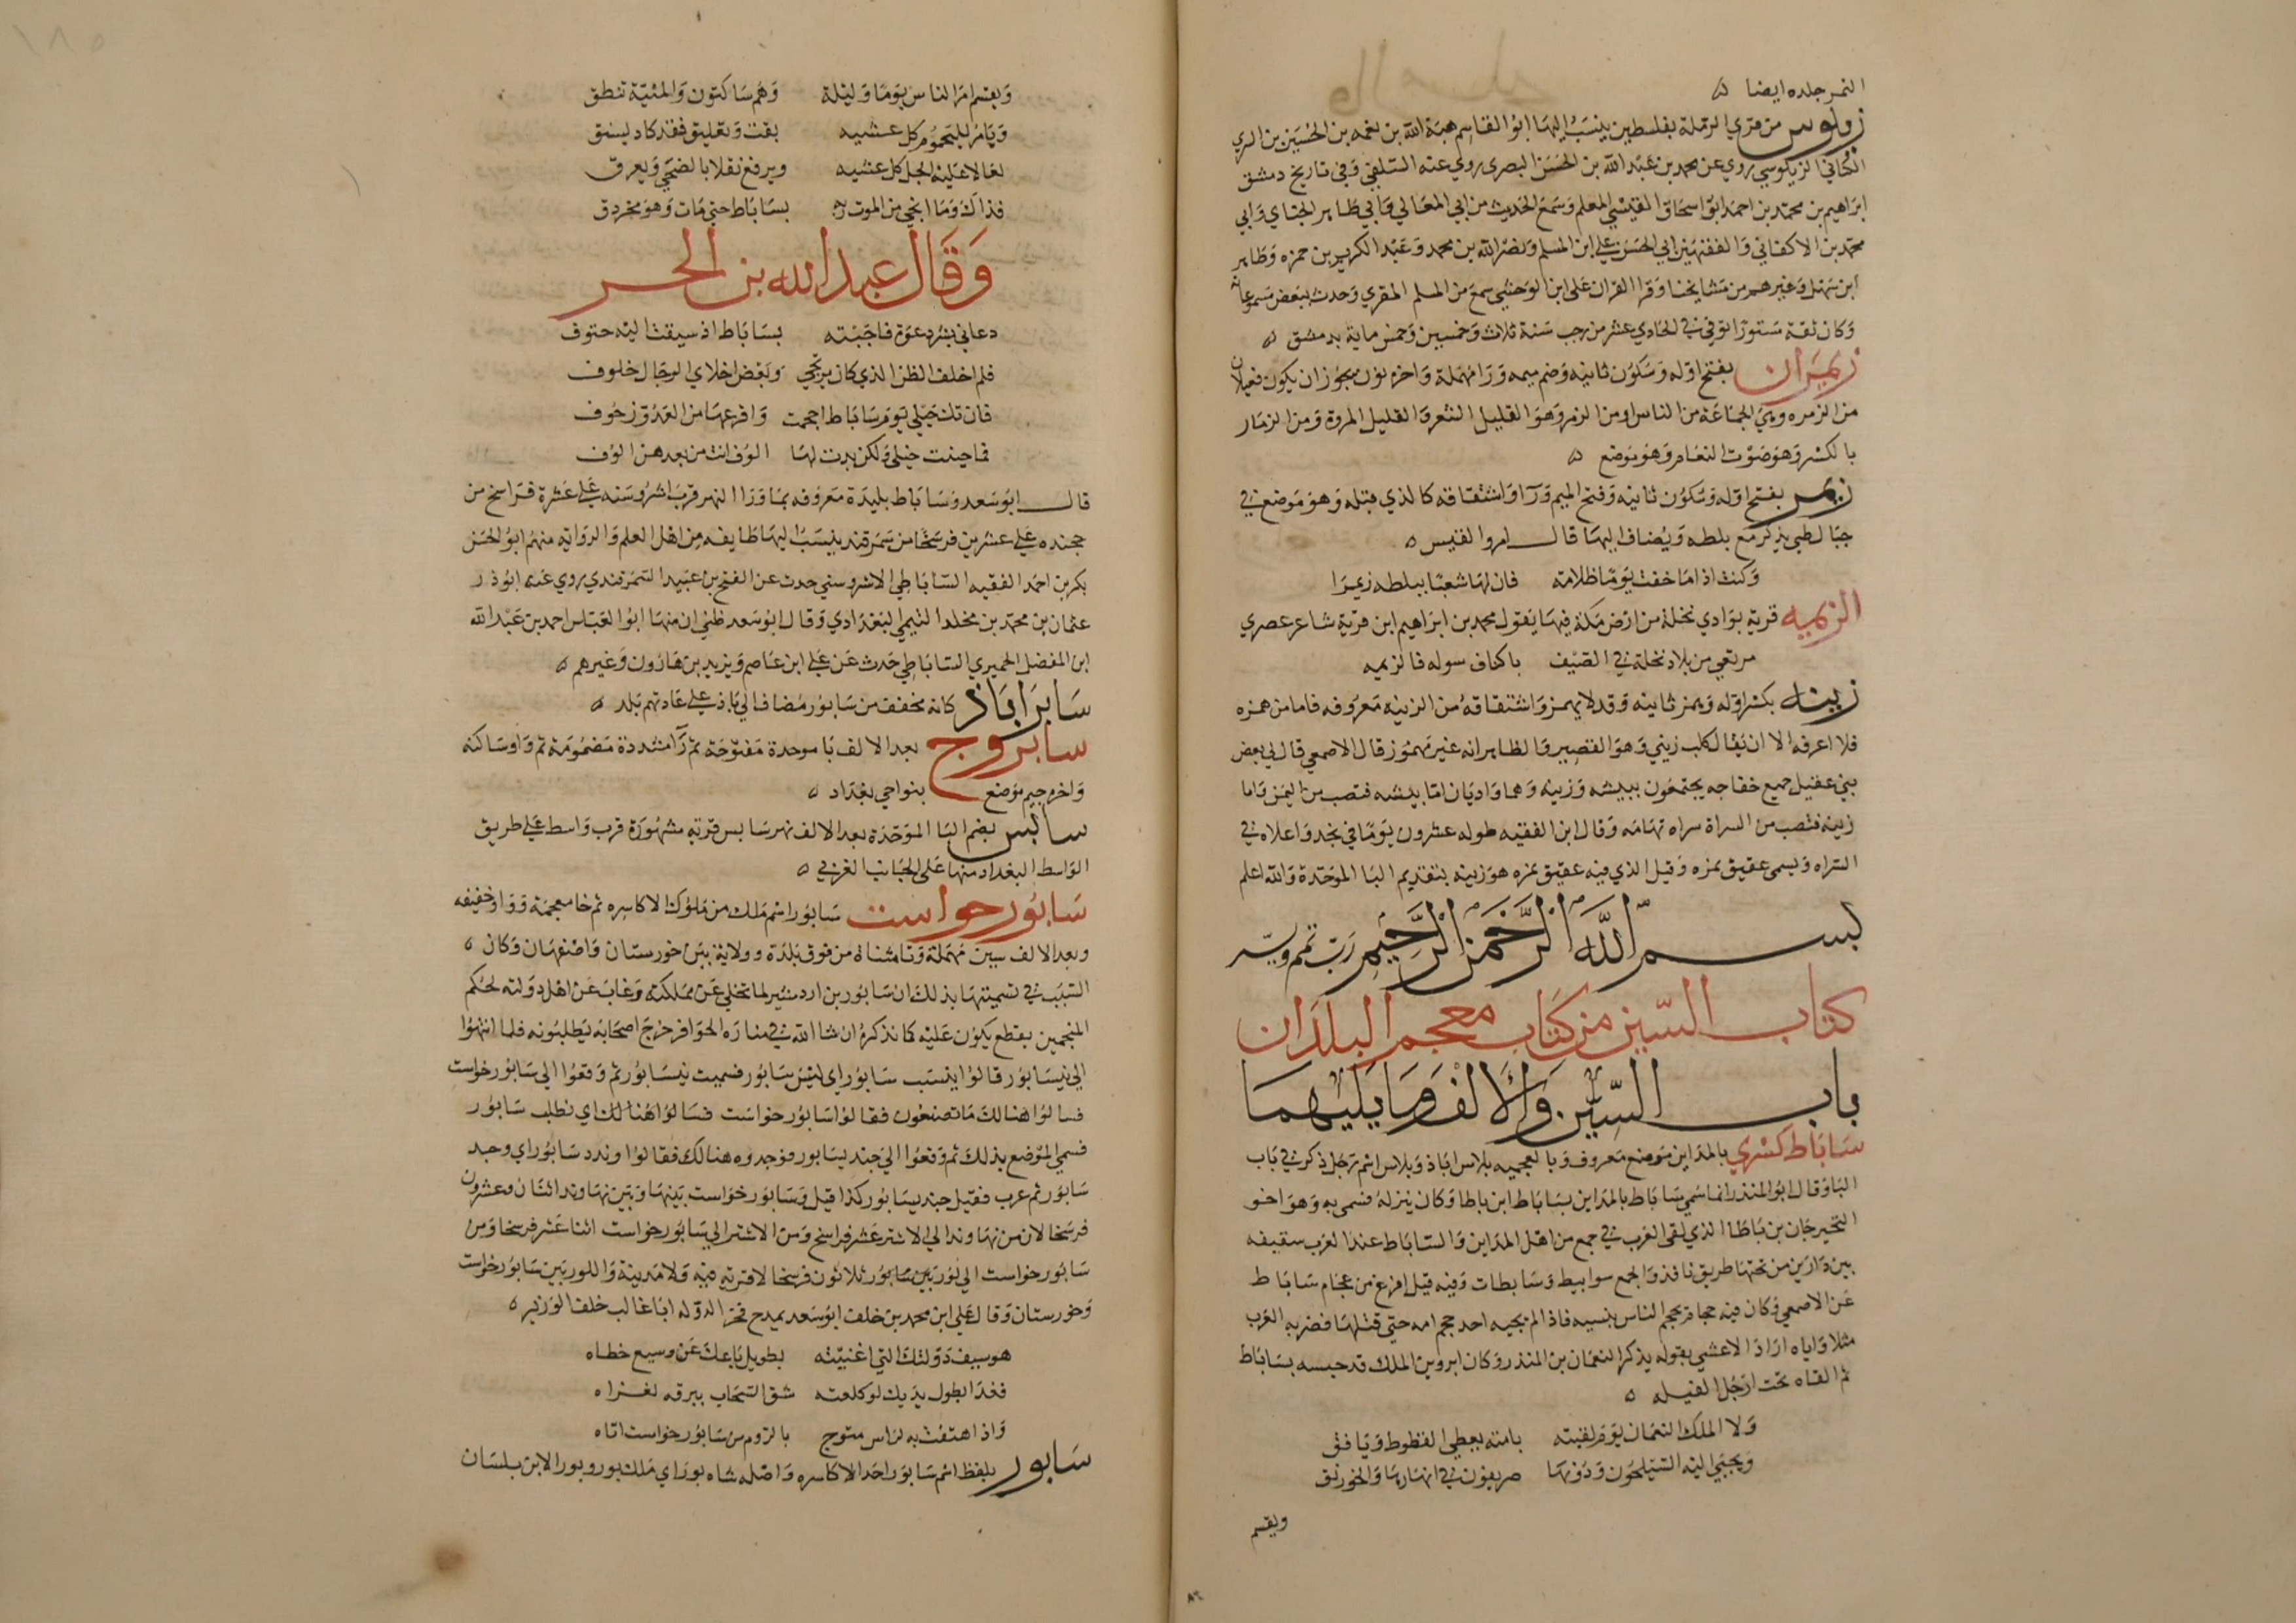 النمر جلده ايضا ه
زيلوس من قري الرملة بفلسطين ينسب اليها ابو القاسم هبة الله بن نعمه بن الحسين بن السري
الكناني الزيلوسي روي عن محمد بن عبد الله بن الحسن البصري روي عنه السلفي وفي تاريخ دمشق
ابراهيم بن محمد بن احمد ابو اسحاق القيسي المعلم وسمع الحديث من ابي المعالي وابي طاهر الحناي وابي
محمد بن الاكفاني والفقيهين ابي الحسن علي ابن المسلم ونصر الله بن محمد وعبد الكريم بن حمزه وطاهر
ابن سهل وغيرهم من مشايخنا وقرا القران على ابن الوحشي سمع من المسلم المقري وحدث ببعض مسموعاته
وكان ثقة مستورا توفي في الحادي عشر من رجب سنة ثلاث وخمسين وخمس ماية بدمشق ه
زيمران بفتح اوله وسكون ثانيه وضم ميمه ورا مهملة واخره نون يجوز ان يكون فعيلان
من الزمره وهي الجماعة من الناس او من الزمر وهو القليل الشعر والقليل المروة ومن الزمار
بالكسر وهو صوت النعام وهو موضع ه
زيمر بفتح اوله وسكون ثانيه وفتح الميم ورا واشتقاقه كالذي قبله وهو موضع في
جبال طي يذكر مع بلطه ويضاف اليها قال امروا القيس ه
وكنت اذا ما خفت يوما ظلامة فان لها شعبا ببلطه زيمرا
الزيميه قرية بوادي نخلة من ارض مكة فيها يقول محمد بن ابراهيم ابن قرية شاعر عصري
مرتعي من بلاد نخلة في الصيف باكناف سوله فالزيميه
زينه بكسر اوله ويمز ثانيه وقد لا يهمز واشتقاقه من الزينه معروفه فاما من همزه
فلا اعرفه الا ان يقال كلب زيني وهو القصير والظاهر انه غير مهموز قال الاصمعي قال لي بعض
بني عقيل جميع خفاجه يجتمعون ببيشه وزينه وهما واديان اما بيشه فتصب من اليمن واما
زينه فتصب من السراة سراه تهامه وقال ابن الفقيه طوله عشرون يوما في نجد واعلاه في
السراه ويسمى عقيق تمزه وقيل الذي فيه عقيق تمره هو زبنه بتقديم البا الموحدة والله اعلم
بسم الله الرحمن الرحيم رب تمم ويسر
كتاب السين من كتاب معجم البلدان
باب السين والالف وما يليهما
ساباط كسري بالمداين موضع معروف وبالعجميه بلاس اباذ وبلاس اسم رجل ذكر في باب
البا وقال ابو المنذر انما سمي ساباط بالمداين بساباط ابن باطا وكان ينزله فسمى به وهو اخو
النخيرجان بن باطا الذي لقى العرب في جمع من اهل المداين والساباط عند العرب سقيفه
بين دارين من تحتها طريق نافذ والجمع سوابيط وساباطات وفيه قيل افرغ من حجام ساباط
عن الاصمعي وكان فيه حجام يحجم الناس بنسيه فاذا لم يجيه احد حجم امه حتى قتلها فضربه العرب
مثلا واياه اراد الاعشى بقوله يذكر النعمان بن المنذر وكان ابرويز الملك قد حبسه بساباط
ثم القاه تحت ارجل الفيله ه
ولا الملك النعمان يوم لقيته بامته يعطي القطوط ويافق
ويجبي اليه السيلحون ودونها صريفون في انهارها والخورنق
ويقسم
ويقسم امر الناس يوما وليلة وهم ساكتون والمنية تنطق
ويامر لليحموم كل عشيه بقت وتعليق فقد كاد يسنق
يعالا عليه الجل كل عشيه ويرفع نقلا بالضحي ويعرق
فذاك وما انجي من الموت ربه بساباط حتى مات وهو محزرق
وقال عبد الله بن الحر
دعاني بشر دعوة فاجبته بساباط اذ سيقت اليه حتوف
فلم اخلف الظن الذي كان يرتجي وبعض اخلاي الرجال خلوف
فان تك خيلي يوم ساباط احجمت وافزعها من العدو زحوف
فما جبنت خيلي ولكن بدت لها الوف اتت من بعدهن الوف
قال ابو سعد وساباط بليدة معروفه بما ورا النهر قرب اشروسنه علي عشرة فراسخ من
خجنده علي عشرين فرسخا من سمرقند ينسب اليها طايفه من اهل العلم والرواية منهم ابو الحسن
بكر بن احمد الفقيه الساباطي الاشروسني حدث عن الفتح بن عبيد السمرقندي روي عنه ابو ذر
عثمان بن محمد بن مخلد التيمي البغدادي وقال ابو سعد ظني ان منها ابو العباس احمد بن عبد الله
ابن المفضل الحميري الساباطي حدث عن علي ابن عاصم ويزيد بن هارون وغيرهم ه
سابراباذ كانه مخفف من سابور مضاف الي باذ علي عادتهم بلد ه
سابروج بعد الالف با موحدة مفتوحة ثم را مشددة مضمومة ثم واو ساكنه
واخره جيم موضع بنواحي بغداد ه
سابس بضم البا الموحدة بعد الالف نهر سابس قرية مشهورة قرب واسط علي طريق
الواسط البغداد منها على الجانب الغربي ه
سابور خواست سابور اسم ملك من ملوك الاكاسره ثم خا معجمة وواو خفيفه
وبعد الالف سين مهملة وتا مثناة من فوق بلدة وولاية بين خورستان واصفهان وكان ه
السبب في تسميتها بذلك ان سابور بن اردشير لما تخلي عن مملكته وغاب عن اهل دولته لحكم
المنجمين بقطع يكون عليه كما نذكره ان شا الله في منارة الحوافر خرج اصحابه يطلبونه فلما انتهوا
الي نيسابور قالوا نيست سابور اي ليس سابور فسميت نيسابور ثم وقعوا الي سابور خواست
فسالوا هنالك ما تصنعون فقالوا سابور خواست فسالوا هنالك اي نطلب سابور
فسمي الموضع بذلك ثم وقعوا الي جنديسابور فوجدوه هنالك فقالوا وندد سابور اي وجد
سابور ثم عرب فقيل جنديسابور كذا قيل وسابور خواست بينها وبين نهاوند اثنان وعشرون
فرسخا لان من نهاوند الي الاشتر عشر فراسخ ومن الاشتر الي سابور خواست اثنا عشر فرسخا ومن
سابور خواست الي لور بين سابور ثلاثون فرسخا لا قرية فيه ولا مدينة واللور بين سابور خواست
وخورستان وقال علي ابن محمد بن خلف ابو سعد يمدح فخر الدوله ابا غالب خلف الوزير ه
هو سيف دولتك التي اغنيته بطويل باعك عن وسيع خطاه
فغدا بطول يديك لو كلفته شق السحاب ببرقه لفراه
واذا هتفت به لراس متوج بالروم من سابور خواست اتاه
سابور بلفظ اسم سابور احد الاكاسره واصله شاه بور اي ملك بور وبور الابن بلسان